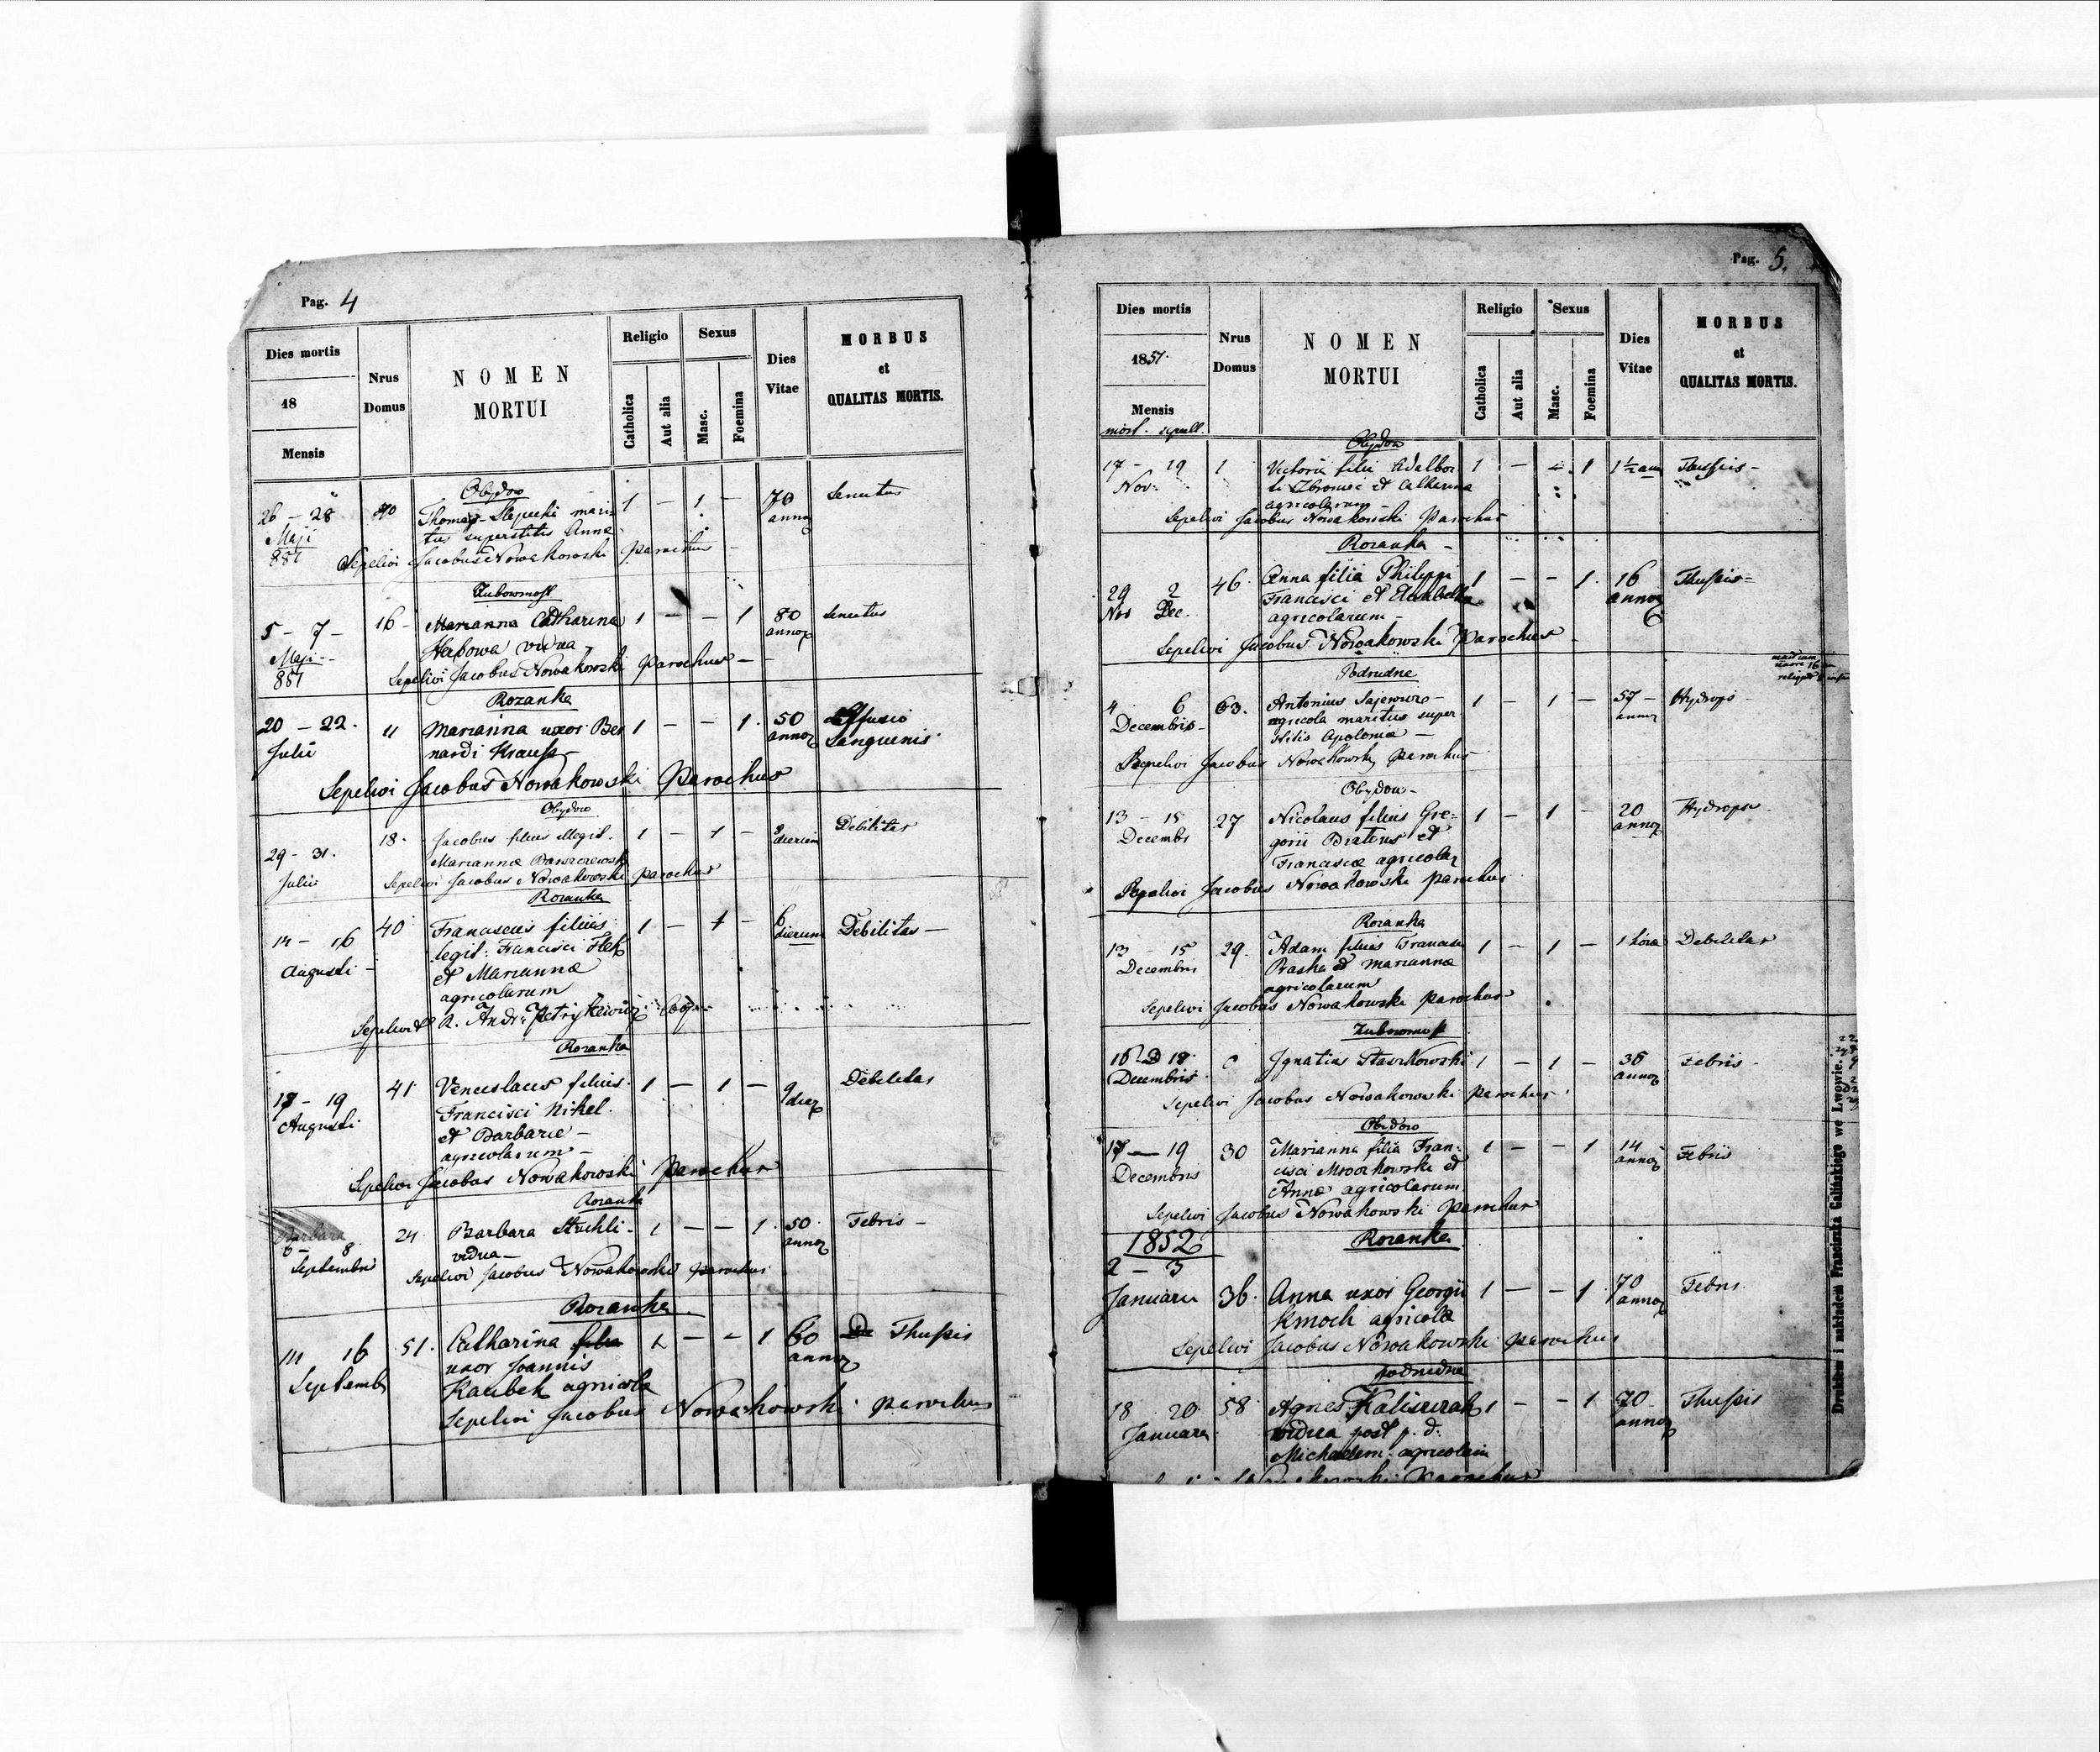 Pag. 4
Dies mortis
18
Mensis
Nrus
Domus
NOMEN
MORTUI
Religio
Catholica
Aut alia
Sexus
Masc.
Foemina
Dies
Vitae
MORBUS
et
QUALITAS MORTIS.
Obydow
26 - 28 70 Thomas Slepecki mari- 1 - 1 - 70 Senectus
Maji tus superstitis Anna annor
851 Sepelivi Jacobus Nowakowski Parochus
5 - 7 - 16 - Marianna Catharina 1 - - 1 80 Senectus
Maji Herbowa vidua annor
851 Sepelivi Jacobus Nowakowski Parochus -
Rozanka
20 - 22. 11 Marianna uxor Ber 1 - - 1. 50 Effusio
Julii nardi Krausa annor Sanguenis
Sepelivi Jacobus Nowakowski Parochus
Obydow
29 - 31. 18. Jacobus filius illegit. 1 - 1 - 3 dierum Debilitas
Julii Mariannæ
Sepelivi Jacobus Nowakowski parochus
Rozanka
14 - 16 40 Franciscus filius 1 - 1 - 6 dierum Debilitas -
Augusti - legit: Francisci
et Mariannæ
agricolarum
Sepelivit R. Andr:
Rozanka
17 - 19 41 Venceslaus filius 1 - 1 - 9 dier Debilitas
Augusti Francisci Nikel
et Barbaræ -
agricolarum -
Sepelivi Jacobus Nowakowski Parochus
Rozanka
6 - 8 24 Barbara Struhli - 1 - - 1. 50 Febris -
Septembris vidua - annor
Sepelivi Jacobus Nowakowski parochus
Rozanka
14 16 51. Catharina filia 1 - - 1 60 De Thussis
Septemb uxor Joannis annor
Kaubek agricola
Sepelivi Jacobus Nowakowski parochus
Pag. 5.
Dies mortis
1851.
Mensis
mort. sepult.
Nrus
Domus
NOMEN
MORTUI
Religio
Catholica
Aut alia
Sexus
Masc.
Foemina
Dies
Vitae
MORBUS
et
QUALITAS MORTIS.
Obydow
17 - 19 1 Victoria filia Adalber 1 - - 1 1½ ann Thussis -
Nov. ti et Catharina
agricolarum -
Sepelivi Jacobus Nowakowski Parochus
Rozanka -
29 2 46. Anna filia Philippi 1 - - 1. 16 Thussis
Nov Dec. Francisci et annor
agricolarum -
Sepelivi Jacobus Nowakowski Parochus
Podrudne
4 6 63. Antonius Sajewicz - 1 - 1 - 57 - Hydrops
Decembris - agricola maritus super annor
stitis Apoloniæ -
Sepelivi Jacobus Nowakowski Parochus
Obydow -
13 - 15 27 Nicolaus filius Gre- 1 - 1 - 20 Hydrops
Decembr gorii Bratens et annor
Franciscæ agricolar
Sepelivi Jacobus Nowakowski parochus
Rozanka
13 - 15 29. Adam filius Francisci 1 - 1 - 1 hora Debilitas
Decembris Praska et Mariannæ
agricolarum
Sepelivi Jacobus Nowakowski parochus
16 18 Ignatius Staszkowski 1 - 1 - 36 Febris -
Decembris annor
Sepelivi Jacobus Nowakowski parochus
Obydow
17 - 19 30 Marianna filia Fran- 1 - - 1 14 Febris
Decembris cisci Mrochowski et annor
Annæ agricolarum
Sepelivi Jacobus Nowakowski Parochus
1852 Rozanka
2 - 3
Januarii 36. Anna uxor Georgii 1 - - 1 70 Febris
Kmoch agricolæ annor
Sepelivi Jacobus Nowakowski parochus
podrudne
18 20 58 Agnes Kaliszczak 1 - - 1 70 Thussis
Januarii vidua post p. d. annor
Michaelem agricolam
Drukiem i nakładem Franciszka Galińskiego we Lwowie.